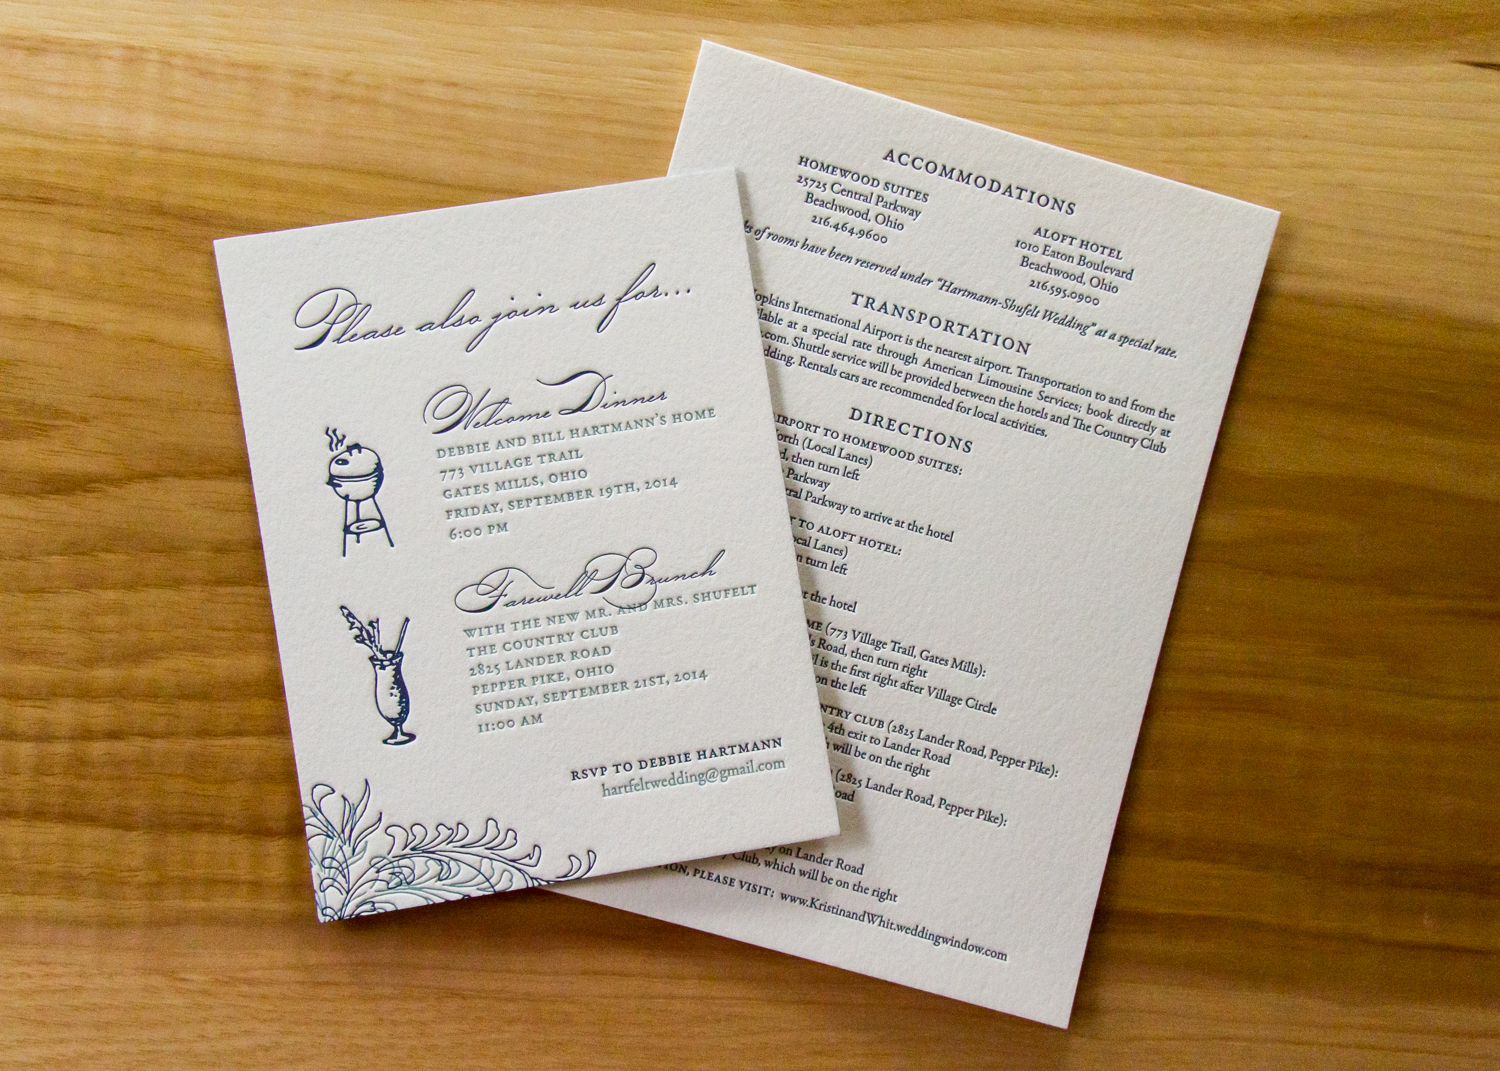 Please also join us for...
Welcome Dinner
DEBBIE AND BILL HARTMANN'S HOME
773 VILLAGE TRAIL
GATES MILLS, OHIO
FRIDAY, SEPTEMBER 19TH, 2014
6:00 PM
Farewell Brunch
WITH THE NEW MR. AND MRS. SHUFELT
THE COUNTRY CLUB
2825 LANDER ROAD
PEPPER PIKE, OHIO
SUNDAY, SEPTEMBER 21ST, 2014
11:00 AM
RSVP TO DEBBIE HARTMANN
hartfeltwedding@gmail.com
ACCOMMODATIONS
HOMEWOOD SUITES
25725 Central Parkway
Beachwood, Ohio
216.464.9600
ALOFT HOTEL
1010 Eaton Boulevard
Beachwood, Ohio
216.595.0900
of rooms have been reserved under "Hartmann-Shufelt Wedding" at a special rate.
TRANSPORTATION
International Airport is the nearest airport. Transportation to and from the
at a special rate through American Limousine Services; book directly at
.com. Shuttle service will be provided between the hotels and The Country Club
Rentals cars are recommended for local activities.
DIRECTIONS
TO HOMEWOOD SUITES:
(Local Lanes)
then turn left
Parkway
Parkway to arrive at the hotel
TO ALOFT HOTEL:
Lanes)
turn left
the hotel
(773 Village Trail, Gates Mills):
Road, then turn right
is the first right after Village Circle
on the left
CLUB (2825 Lander Road, Pepper Pike):
4th exit to Lander Road
will be on the right
(2825 Lander Road, Pepper Pike):
on Lander Road
Club, which will be on the right
PLEASE VISIT: www.KristinandWhit.weddingwindow.com